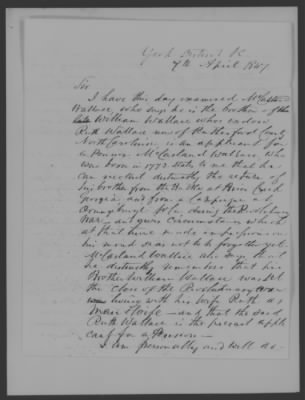 York District SC
7th April 1847
Sir
I have this day examined McCasland
Wallace, who says he is the brother of the
late William Wallace whose widow
Ruth Wallace now of Rutherford County
North Carolina, is an applicant for
a Pension. McCasland Wallace who
was born in 1773 states to me that he
can recollect distinctly the return of
his brother from the Battle at Briar Creek
Georgia, and from a Campaign at
Orangeburgh SC. during the Revolutionary
War, and gives Circumstances which
at that time made an impression on
his mind so as not to be forgotten yet.
McCasland Wallace also says that
he distinctly remembers that his
Brother William Wallace was at
the close of the Revolutionary War
living with his wife Ruth as
man & wife — and that the said
Ruth Wallace is the present appli
cant for a Pension —
I am personally and well ac-